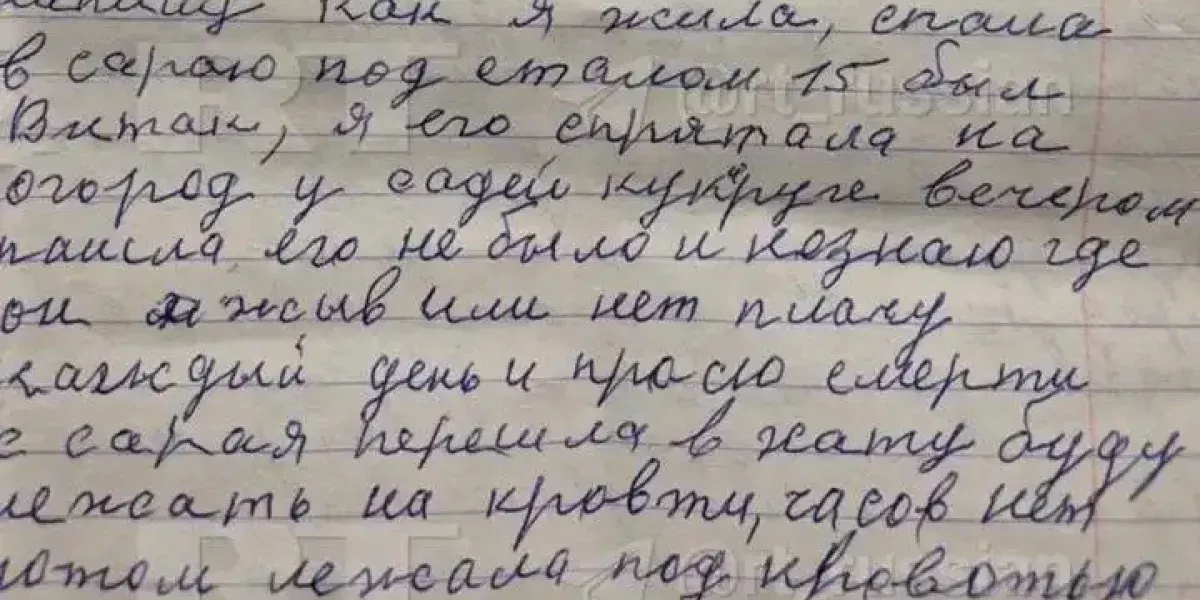 как я жила, спала
в сараю под сталом 15 был
Витак, я его спрятала на
огород у садей кукрузе вечером
паишла его не было и незнаю где
он жыв или нет плачу
каждый день и прасю смерти
с сарая перешла в хату буду
лежать на кровти, часов нет
потом лежала под кроватью
@rt_russian